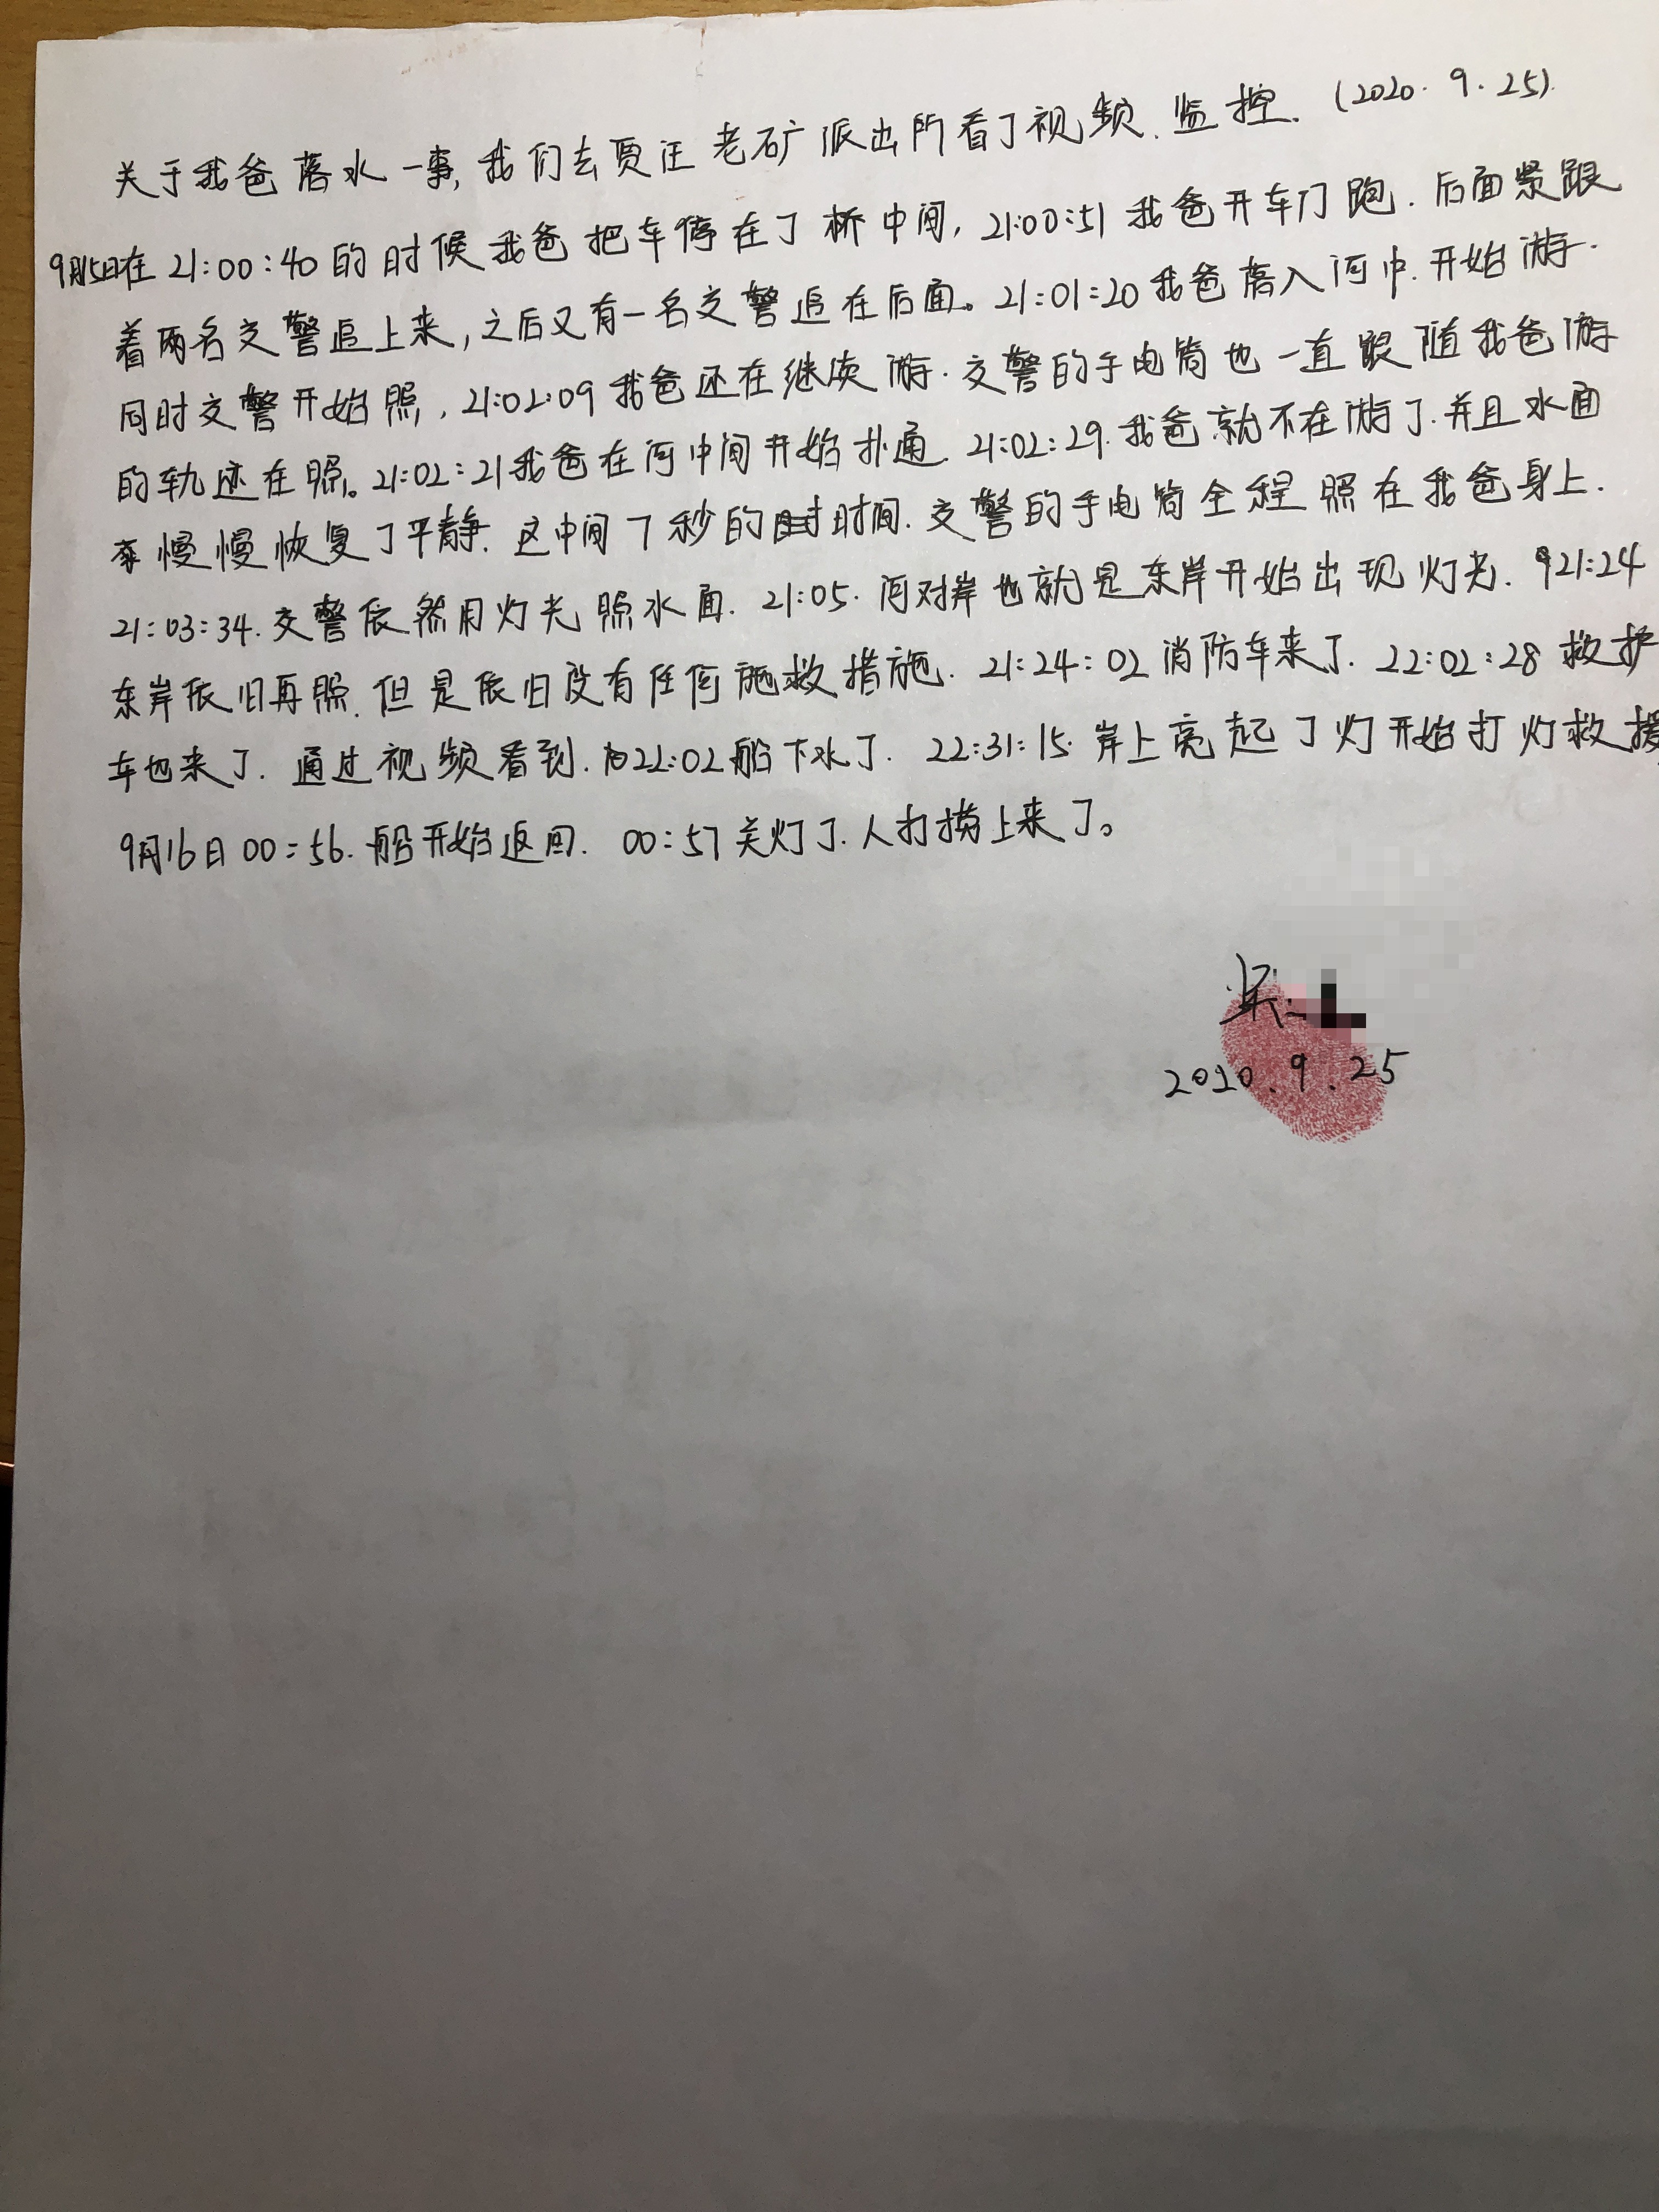 关于我爸落水一事,我们去贾汪老矿派出所看了视频.监控.(2020.9.25).
9月15日在21:00:40的时候我爸把车停在了桥中间,21:00:51我爸开车门跑.后面紧跟
着两名交警追上来,之后又有一名交警追在后面。21:01:20我爸落入河中.开始游.
同时交警开始照,21:02:09我爸还在继续游.交警的手电筒也一直跟随我爸游
的轨迹在照。21:02:21我爸在河中间开始扑通.21:02:29.我爸就不在游了.并且水面
慢慢恢复了平静.这中间7秒的时间.交警的手电筒全程照在我爸身上.
21:03:34.交警依然用灯光照水面.21:05.河对岸也就是东岸开始出现灯光.21:24
东岸依旧再照.但是依旧没有任何施救措施.21:24:02消防车来了.22:02:28救护
车也来了.通过视频看到.22:02船下水了.22:31:15.岸上亮起了灯开始打灯救援
9月16日00:56.船开始返回.00:57关灯了.人打捞上来了。
2020.9.25